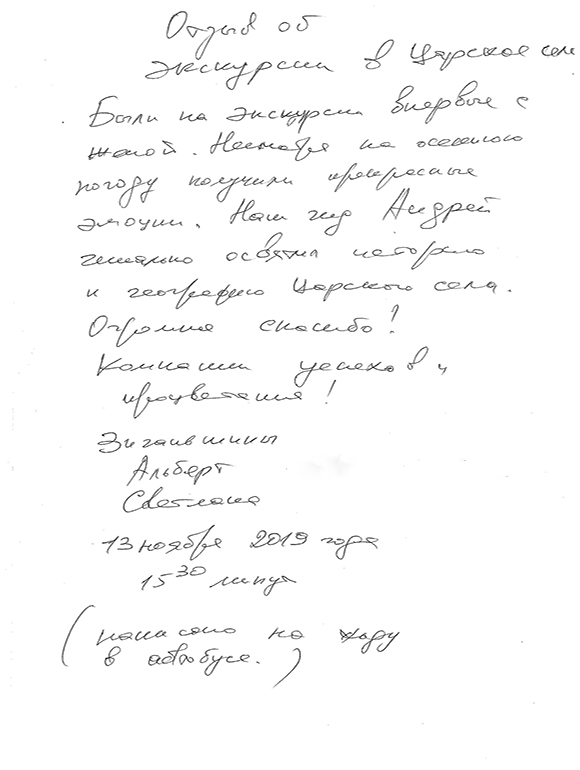 Отзыв об
экскурсии в Царское село
Были на экскурсии впервые с
женой. Несмотря на осеннюю
погоду получили прекрасные
эмоции. Наш гид Андрей
гениально осветил историю
и географию Царского села.
Огромное спасибо!
Компании успехов и
процветания!
Зигангишины
Альберт
Светлана
13 ноября 2019 года
15 30 минут
(написано на ходу
в автобусе.)